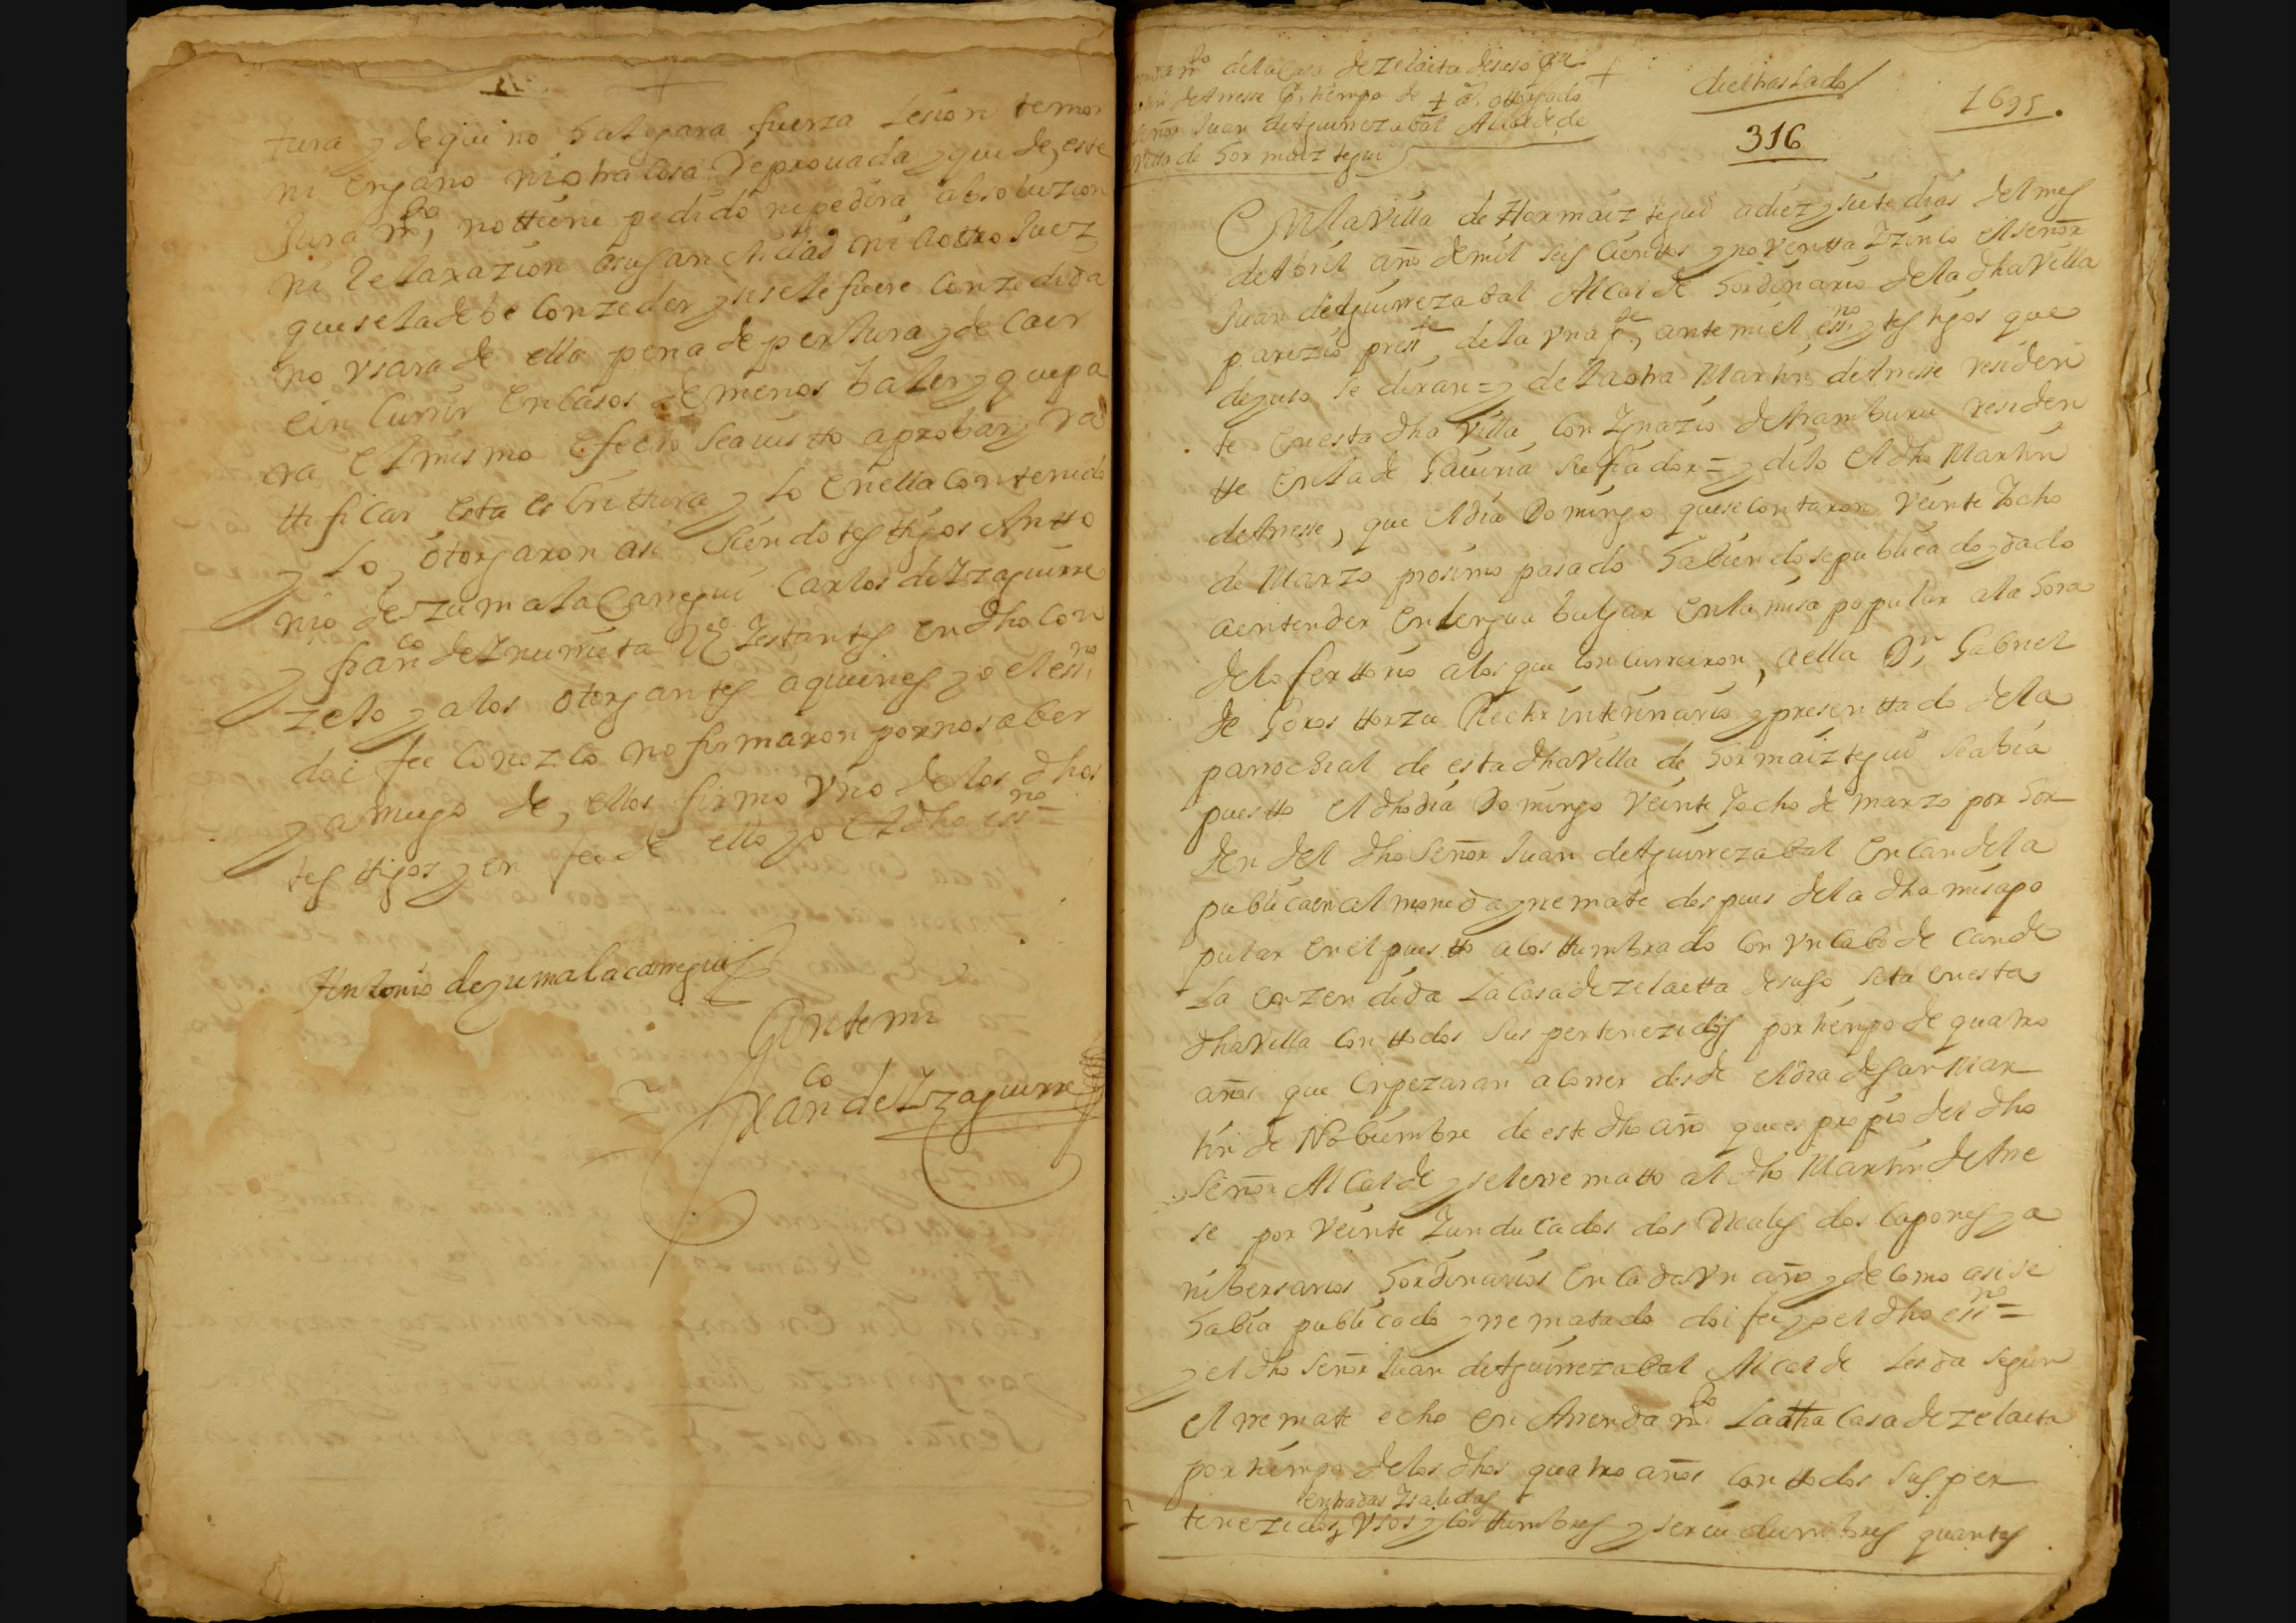 tura y de que no hubo para fuerza Lesion temor
ni engaño ni otra cosa Reprouada y que de, este
Jura mto, no ttiene pedido ni pedira absoluzion
ni Relaxazion a su santidad ni a otro Juez
que se la debe conzeder y si se le fuere conzedida
no vsara de ella pena de perJura y de caer
e in currir en casos de menos baler y que pa
ra el mismo efecto sea uistto aprobar y ra
ttificar esta escrittura y lo en ella contenido
y lo, otorgaron asi siendo tes ttigos Antto
nio de zumalacarregui Carlos de Yzaguirre
y franco de Ynurrieta Vos Yestantes en dho con
zeJo y a los otorgantes a quienes yo el essno
doi fee conozco no firmaron por no saber
y a ruego de, ellos firmo vno de los dhos
tes ttigos y en fee de ello yo el dho essno =
Antonio de zumalacarregui
Ante mi
franco de Yzaguirre
mto de la Casa de zelaeta de suso
de Arresse Por tiempo de 4 as. ottorgado
señor Juan de Aguirrezabal Alcalde de
Villa de Hormaiztegui
diel traslado
1695.
316
En la Villa de Hormaiztegui a diez y siete dias del mes
de Abril año de mil seis cientos y noventta Y zinco el señor
Juan de Aguirrezabal Alcalde hordinario de la dha Villa
parezio presste de la vna pte, ante mi el essno y tes tigos que
de yuso se diran = y de la otra Martin de Arresse residen
te en esta dha villa con Ygnazio de Aramburu residen
tte en la de Gauiria su fiador = y dijo el dho Martin
de Arresse, que el dia Domingo que se contaron Veinte Y ocho
de Marzo proximo pasado habiendose publicado y dado
a entender en lengua bulgar en la misa popular a la hora
del ofertorio a los que concurrieron, a ella Dn Gabriel
de Goros ttorzu Rector interinario y presenttado de la
parrochial de esta dha Villa de Hormaiztegui se abia
puestto el dho dia Domingo Veinte Y ocho de marzo por hor
den del dho Señor Juan de Aguirrezabal en candela
publica en almoneda y remate despues de la dha misa po
pular en el puestto acos ttumbrado con vn cabo de cande
la enzendida La Casa de zelaetta de suso sita en esta
dha Villa con ttodos sus pertenezidos por tiempo de quatro
años que enpezaran a correr desde el dia de san Mar
tin de Nobiembre de este dho año que es propio del dho
Señor Alcalde y se le rematto al dho Martin de Arre
se por Veinte Y un ducados dos Reales dos Capones y a
nibersarios hordinarios en cada vn año y de como asi se
habia publicado y rematado doi fee yo el dho essno =
y el dho señor Juan de Aguirrezabal Alcalde les da segun
el remate echo en Arrenda mto La dha Casa de zelaeta
por tiempo de los dhos quatro años con ttodos sus per
entradas Y salidas
tenezidos, vsos y cos ttumbres y seruidumbres quantas